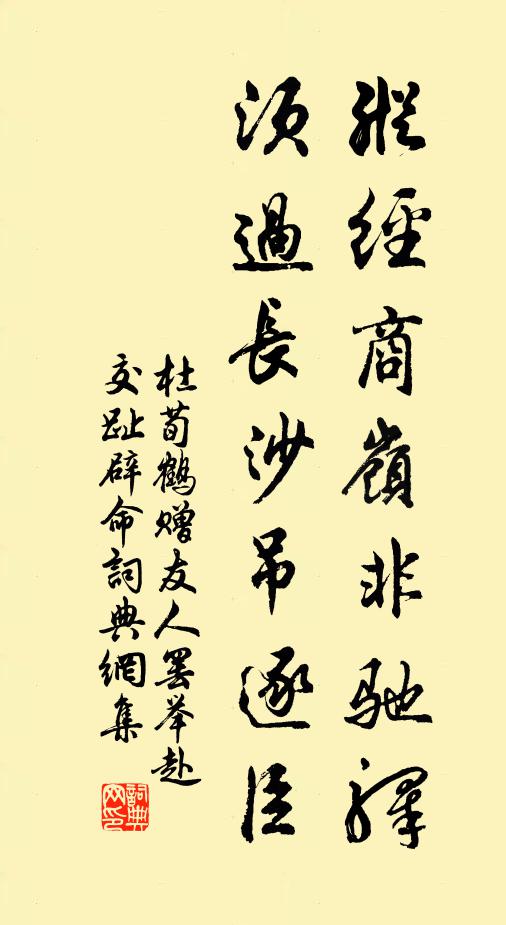 縱經商嶺非馳驛
須過長沙吊逐臣
杜荀鶴赠友人罢举赴
交趾辟命詞典網集
詞典网印